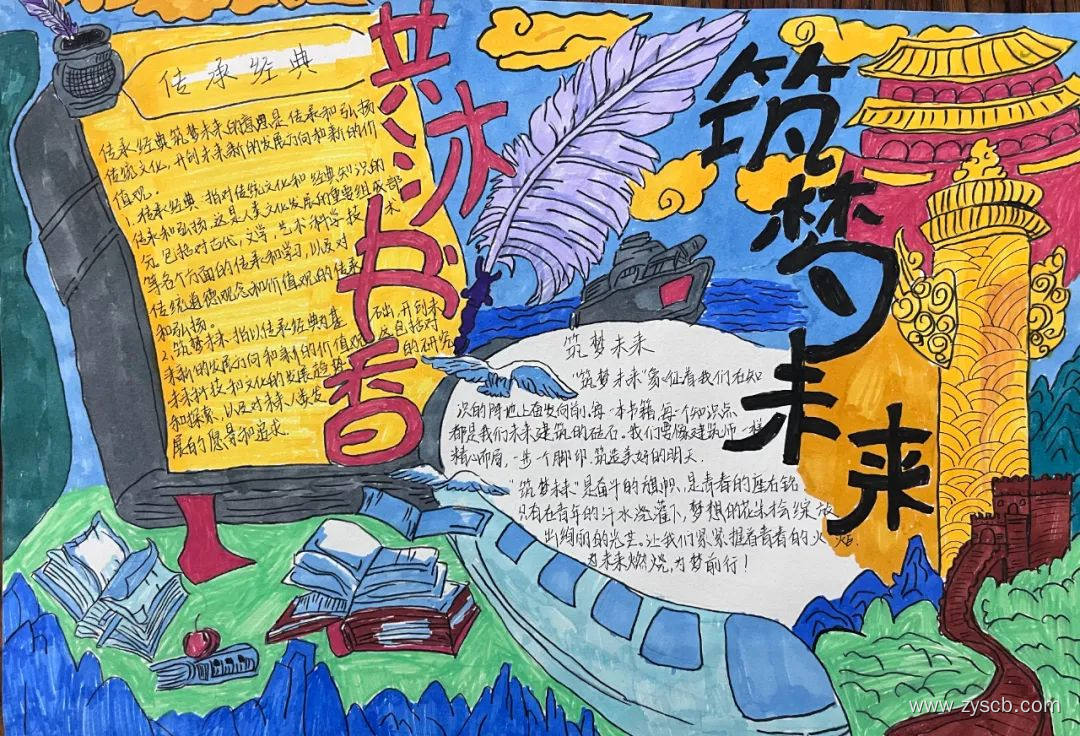 共沐书香
筑梦未来
传承经典
传承经典筑梦未来的意思是传承和弘扬
传统文化,开创未来新的发展方向和新的价
值观。
1.传承经典:指对传统文化和经典知识的
传承和弘扬.这是人类文化发展的重要组成部
分.包括对古代,文学,艺术科学技术
等各个方面的传承和学习,以及对
传统道德观念和价值观的传承
和弘扬。
2.筑梦未来:指以传承经典为基础,开创未
来新的发展方向和新的价值观.这包括对
未来科技和文化的发展趋势的研究
和探索,以及对未来人类发
展的愿景和追求.
筑梦未来
"筑梦未来"象征着我们在知
识的阵地上奋发向前,每一本书籍,每个知识点
都是我们未来建筑的砖石。我们要像建筑师一样
精心布局,一步一个脚印.筑造美好的明天.
"筑梦未来"是奋斗的旗帜,是青春的座右铭,
只有在青年的汗水浇灌下,梦想的花朵才会绽放
出绚丽的光芒。让我们紧紧握着青春的火炬.
为未来燃烧,为梦前行!
www.zyscb.com